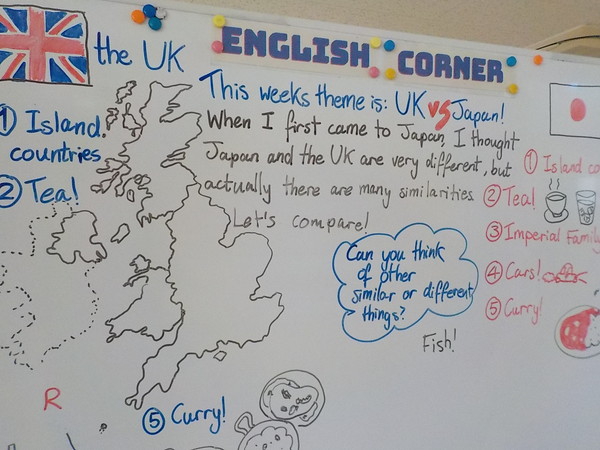 the UK
① Island
countries
② Tea!
ENGLISH CORNER
This weeks theme is: UK vs Japan!
When I first came to Japan, I thought
Japan and the UK are very different, but
actually there are many similarities.
Let's compare!
Can you think
of other
similar or different
things?
Fish!
① Island co
② Tea!
③ Imperial Family
④ Cars!
⑤ Curry!
R
⑤ Curry!